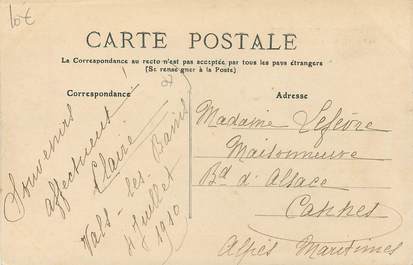 10€
CARTE POSTALE
La Correspondance au recto n'est pas acceptée par tous les pays étrangers
(Se renseigner à la Poste)
Correspondance
Adresse
Souvenirs
affectueux!
Claire
Vals-les-Bains
4 Juillet
1910
Madame Lefèvre
Maisonneuve
Bd d'Alsace
Cannes
Alpes Maritimes